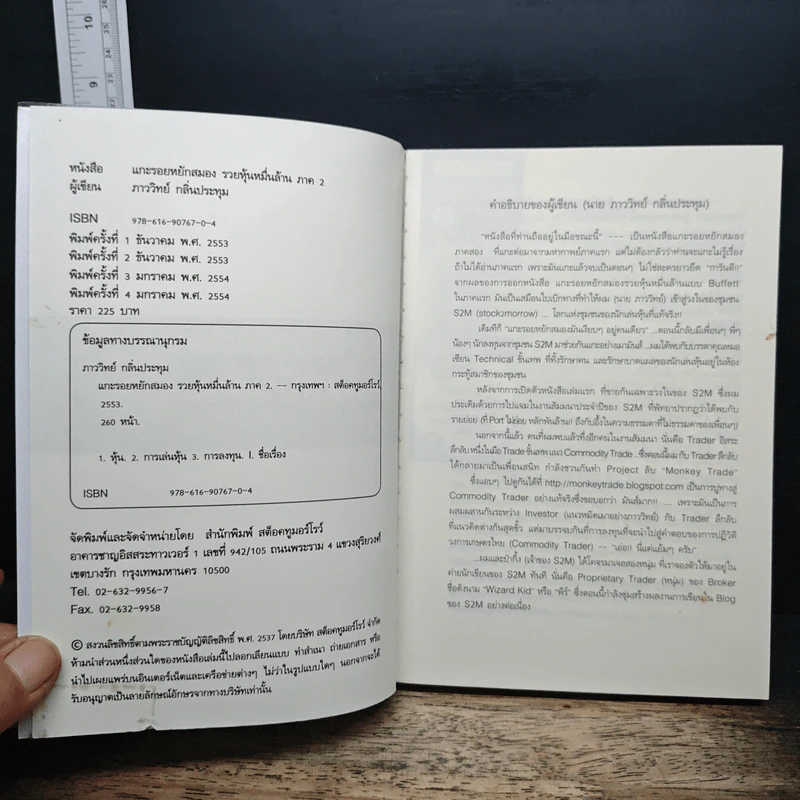 10
9
หนังสือ แกะรอยหยักสมอง รวยหุ้นหมื่นล้าน ภาค 2
ผู้เขียน ภาววิทย์ กลิ่นประทุม
ISBN 978-616-90767-0-4
พิมพ์ครั้งที่ 1 ธันวาคม พ.ศ. 2553
พิมพ์ครั้งที่ 2 ธันวาคม พ.ศ. 2553
พิมพ์ครั้งที่ 3 มกราคม พ.ศ. 2554
พิมพ์ครั้งที่ 4 มกราคม พ.ศ. 2554
ราคา 225 บาท
ข้อมูลทางบรรณานุกรม
ภาววิทย์ กลิ่นประทุม
แกะรอยหยักสมอง รวยหุ้นหมื่นล้าน ภาค 2. -- กรุงเทพฯ : สต็อคทูมอร์โรว์
2553.
260 หน้า.
1. หุ้น. 2. การเล่นหุ้น 3. การลงทุน. I. ชื่อเรื่อง
ISBN 978-616-90767-0-4
จัดพิมพ์และจัดจำหน่ายโดย สำนักพิมพ์ สต็อคทูมอร์โรว์
อาคารชาญอิสสระทาวเวอร์ 1 เลขที่ 942/105 ถนนพระราม 4 แขวงสุริยวงศ์
เขตบางรัก กรุงเทพมหานคร 10500
Tel. 02-632-9956-7
Fax. 02-632-9958
© สงวนลิขสิทธิ์ตามพระราชบัญญัติลิขสิทธิ์ พ.ศ. 2537 โดยบริษัท สต็อคทูมอร์โรว์ จำกัด
ห้ามนำส่วนหนึ่งส่วนใดของหนังสือเล่มนี้ไปลอกเลียนแบบ ทำสำเนา ถ่ายเอกสาร หรือ
นำไปเผยแพร่บนอินเตอร์เน็ตและเครือข่ายต่างๆ ไม่ว่าในรูปแบบใดๆ นอกจากจะได้
รับอนุญาตเป็นลายลักษณ์อักษรจากทางบริษัทเท่านั้น
คำอธิบายของผู้เขียน (นาย ภาววิทย์ กลิ่นประทุม)
"หนังสือที่ท่านถืออยู่ในมือขณะนี้" --- เป็นหนังสือแกะรอยหยักสมอง
ภาคสอง ที่แกะต่อมาจากมหากาพย์ภาคแรก แต่ไม่ต้องกลัวว่าท่านจะแกะไม่รู้เรื่อง
ถ้าไม่ได้อ่านภาคแรก เพราะมันแกะแล้วจบเป็นตอนๆ ไม่ใช่ละครยาวยืด "การันตี!!"
จากผลของการออกหนังสือ แกะรอยหยักสมองรวยหุ้นหมื่นล้านแบบ Buffett
ในภาคแรก มันเป็นเสมือนใบเบิกทางที่ทำให้ผม (นาย ภาววิทย์) เข้าสู่วงในของชุมชน
S2M (stock2morrow) ... โลกแห่งชุมชนของนักเล่นหุ้นที่แท้จริง!!
เดิมทีก็ "แกะรอยหยักสมองมันเงียบๆ อยู่คนเดียว" ...ตอนนี้กลับมีเพื่อนๆ พี่ๆ
น้องๆ นักลงทุนจากชุมชน S2M มาช่วยกันแกะอย่างเมามันส์ ...ผมได้พบกับบรรดาคุณหมอ
เซียน Technical ขั้นเทพ ที่ทั้งรักษาคน และรักษาบาดแผลของนักเล่นหุ้นอยู่ในห้อง
กระทู้สมาชิกของชุมชน
หลังจากการเปิดตัวหนังสือเล่มแรก ที่ขายกันเฉพาะวงในของ S2M ซึ่งผม
ประเดิมด้วยการไปแจมในงานสัมมนาประจำปีของ S2M ที่พัทยาปรากฏว่าได้พบกับ
รายย่อย (ที่ Port ไม่ย่อย หลักพันล้าน!) ถึงกับอึ้งในความธรรมดาที่ไม่ธรรมดาของเพื่อนๆ)
นอกจากนี้แล้ว คนที่ผมพบแล้วทึ่งอีกคนในงานสัมมนา นั่นคือ Trader อิสระ
ลึกลับ หนึ่งในมือ Trade ขั้นเทพ แนว Commodity Trade ...ซึ่งตอนนี้ผม กับ Trader ลึกลับ
ได้กลายมาเป็นเพื่อนสนิท กำลังชวนกันทำ Project ลับ "Monkey Trade"
ซึ่งแอบๆ ไปดูกันได้ที่ http://monkeytrade.blogspot.com เป็นการปูทางสู่
Commodity Trader อย่างแท้จริงซึ่งขอบอกว่า มันส์มาก!! ..... เพราะมันเป็นการ
ผสมผสานกันระหว่าง Investor (แนวหมัดเมาอย่างภาววิทย์) กับ Trader ลึกลับ
ที่แนวคิดต่างกันสุดขั้ว แต่มาบรรจบกันที่การลงทุนที่จะนำไปสู่คำตอบของการปฏิวัติ
วงการเกษตรไทย (Commodity Trader) -- "เอ่อ!! นี่แค่แย้มๆ ครับ"
...ผมและป๋ากิ้ง (เจ้าของ S2M) ได้โคจรมาเจอสองหนุ่ม ที่เราจองตัวให้มาอยู่ใน
ค่ายนักเขียนของ S2M ทันที นั่นคือ Proprietary Trader (หนุ่ม) ของ Broker
ชื่อดังนาม "Wizard Kid" หรือ "พีร์" ซึ่งตอนนี้กำลังซุ่มสร้างผลงานการเขียนใน Blog
ของ S2M อย่างต่อเนื่อง